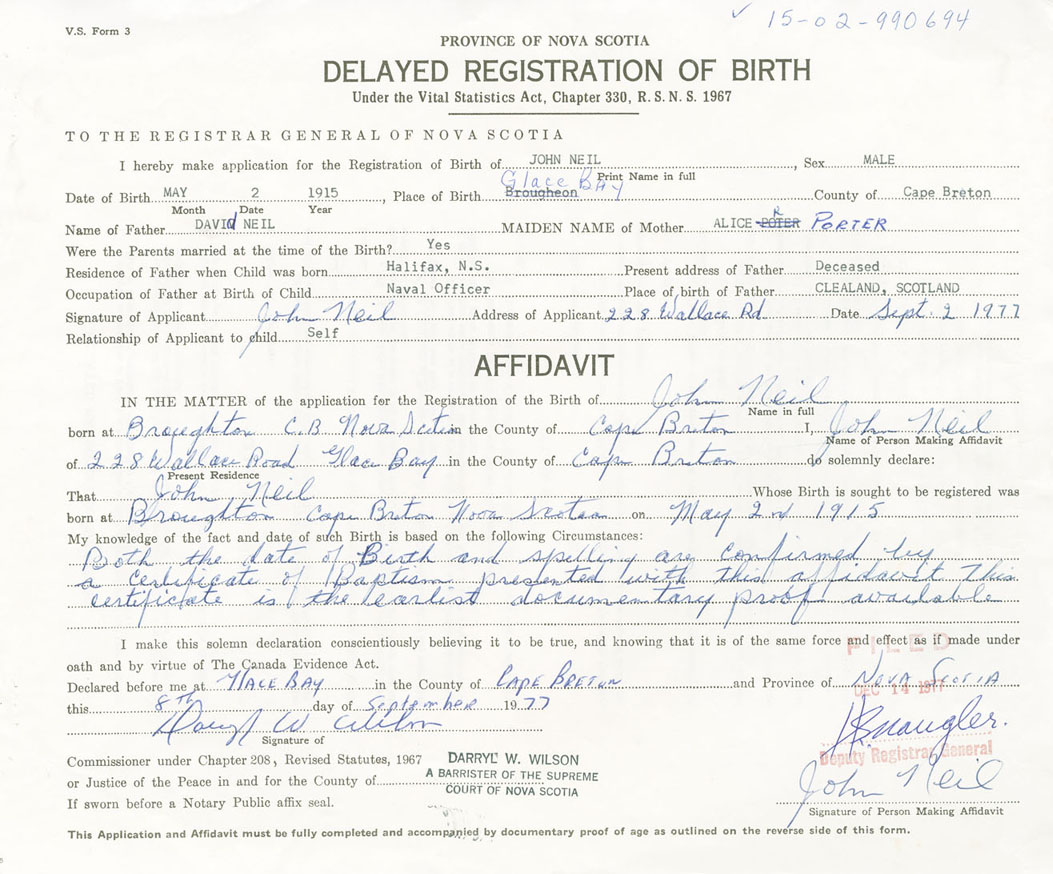 V.S. Form 3
✓ 15-02-990694
PROVINCE OF NOVA SCOTIA
DELAYED REGISTRATION OF BIRTH
Under the Vital Statistics Act, Chapter 330, R.S.N.S. 1967
TO THE REGISTRAR GENERAL OF NOVA SCOTIA
I hereby make application for the Registration of Birth of JOHN NEIL, Sex MALE
Glace BAY Print Name in full
Date of Birth MAY 2 1915, Place of Birth Brougheon County of Cape Breton
Month Date Year
Name of Father DAVId NEIL MAIDEN NAME of Mother ALICE POTER R PORTER
Were the Parents married at the time of the Birth? Yes
Residence of Father when Child was born Halifax, N.S. Present address of Father Deceased
Occupation of Father at Birth of Child Naval Officer Place of birth of Father CLEALAND, SCOTLAND
Signature of Applicant John Neil Address of Applicant 228 Wallace Rd Date Sept. 2 1977
Relationship of Applicant to child Self
AFFIDAVIT
IN THE MATTER of the application for the Registration of the Birth of John Neil
Name in full
born at Broughton C.B Nova Scotia in the County of Cape Breton I, John Neil
Name of Person Making Affidavit
of 228 Wallace Road Glace Bay in the County of Cape Breton do solemnly declare:
Present Residence
That John Neil Whose Birth is sought to be registered was
born at Broughton Cape Breton Nova Scotia on May 2nd 1915
My knowledge of the fact and date of such Birth is based on the following Circumstances:
Both the date of Birth and spelling are confirmed by
a certificate of Baptism presented with this affidavit This
certificate is the earliest documentary proof available
I make this solemn declaration conscientiously believing it to be true, and knowing that it is of the same force and effect as if made under
oath and by virtue of The Canada Evidence Act.
FILED
Declared before me at GLACE BAY in the County of CAPE BRETON and Province of NOVA SCOTIA
DEC 14 1977
this 8TH day of September 1977
Darryl W Wilson
Signature of
Deputy Registrar General
Commissioner under Chapter 208, Revised Statutes, 1967 DARRYL W. WILSON
or Justice of the Peace in and for the County of A BARRISTER OF THE SUPREME
COURT OF NOVA SCOTIA
John Neil
If sworn before a Notary Public affix seal.
Signature of Person Making Affidavit
This Application and Affidavit must be fully completed and accompanied by documentary proof of age as outlined on the reverse side of this form.